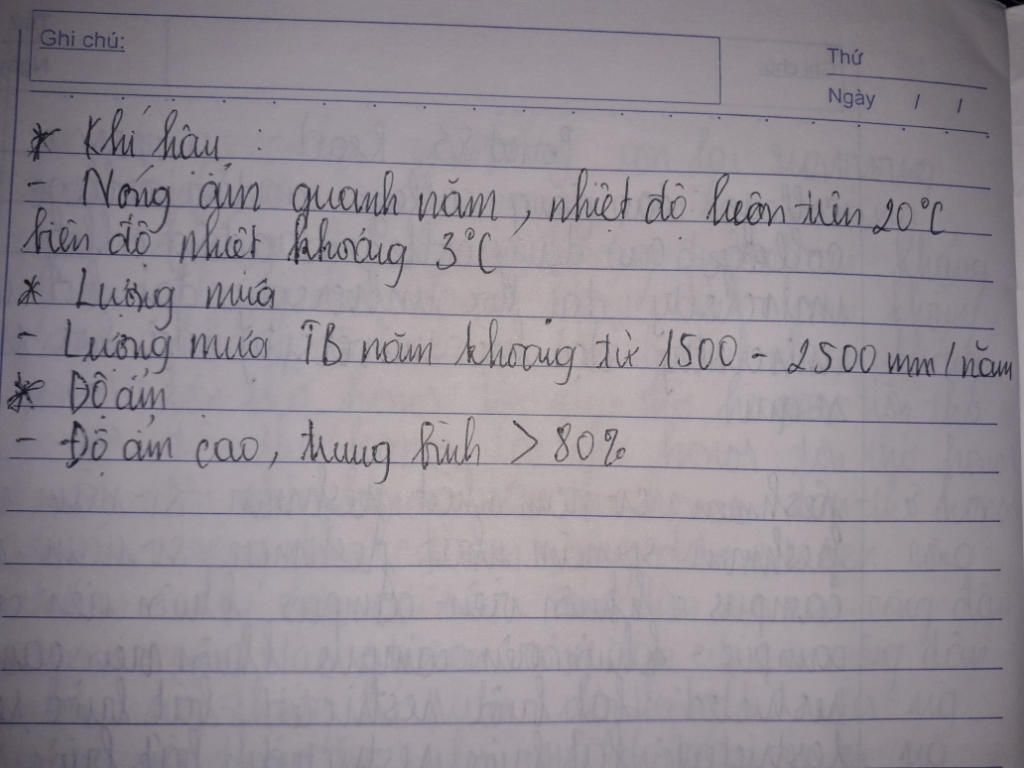 Ghi chú:
Thứ
Ngày / /
* Khí hậu :
- Nóng ẩm quanh năm, nhiệt độ luôn trên 20°C
biên độ nhiệt khoảng 3°C
* Lượng mưa
- Lượng mưa TB năm khoảng từ 1500 - 2500 mm/năm
* Độ ẩm
- Độ ẩm cao, trung bình > 80%